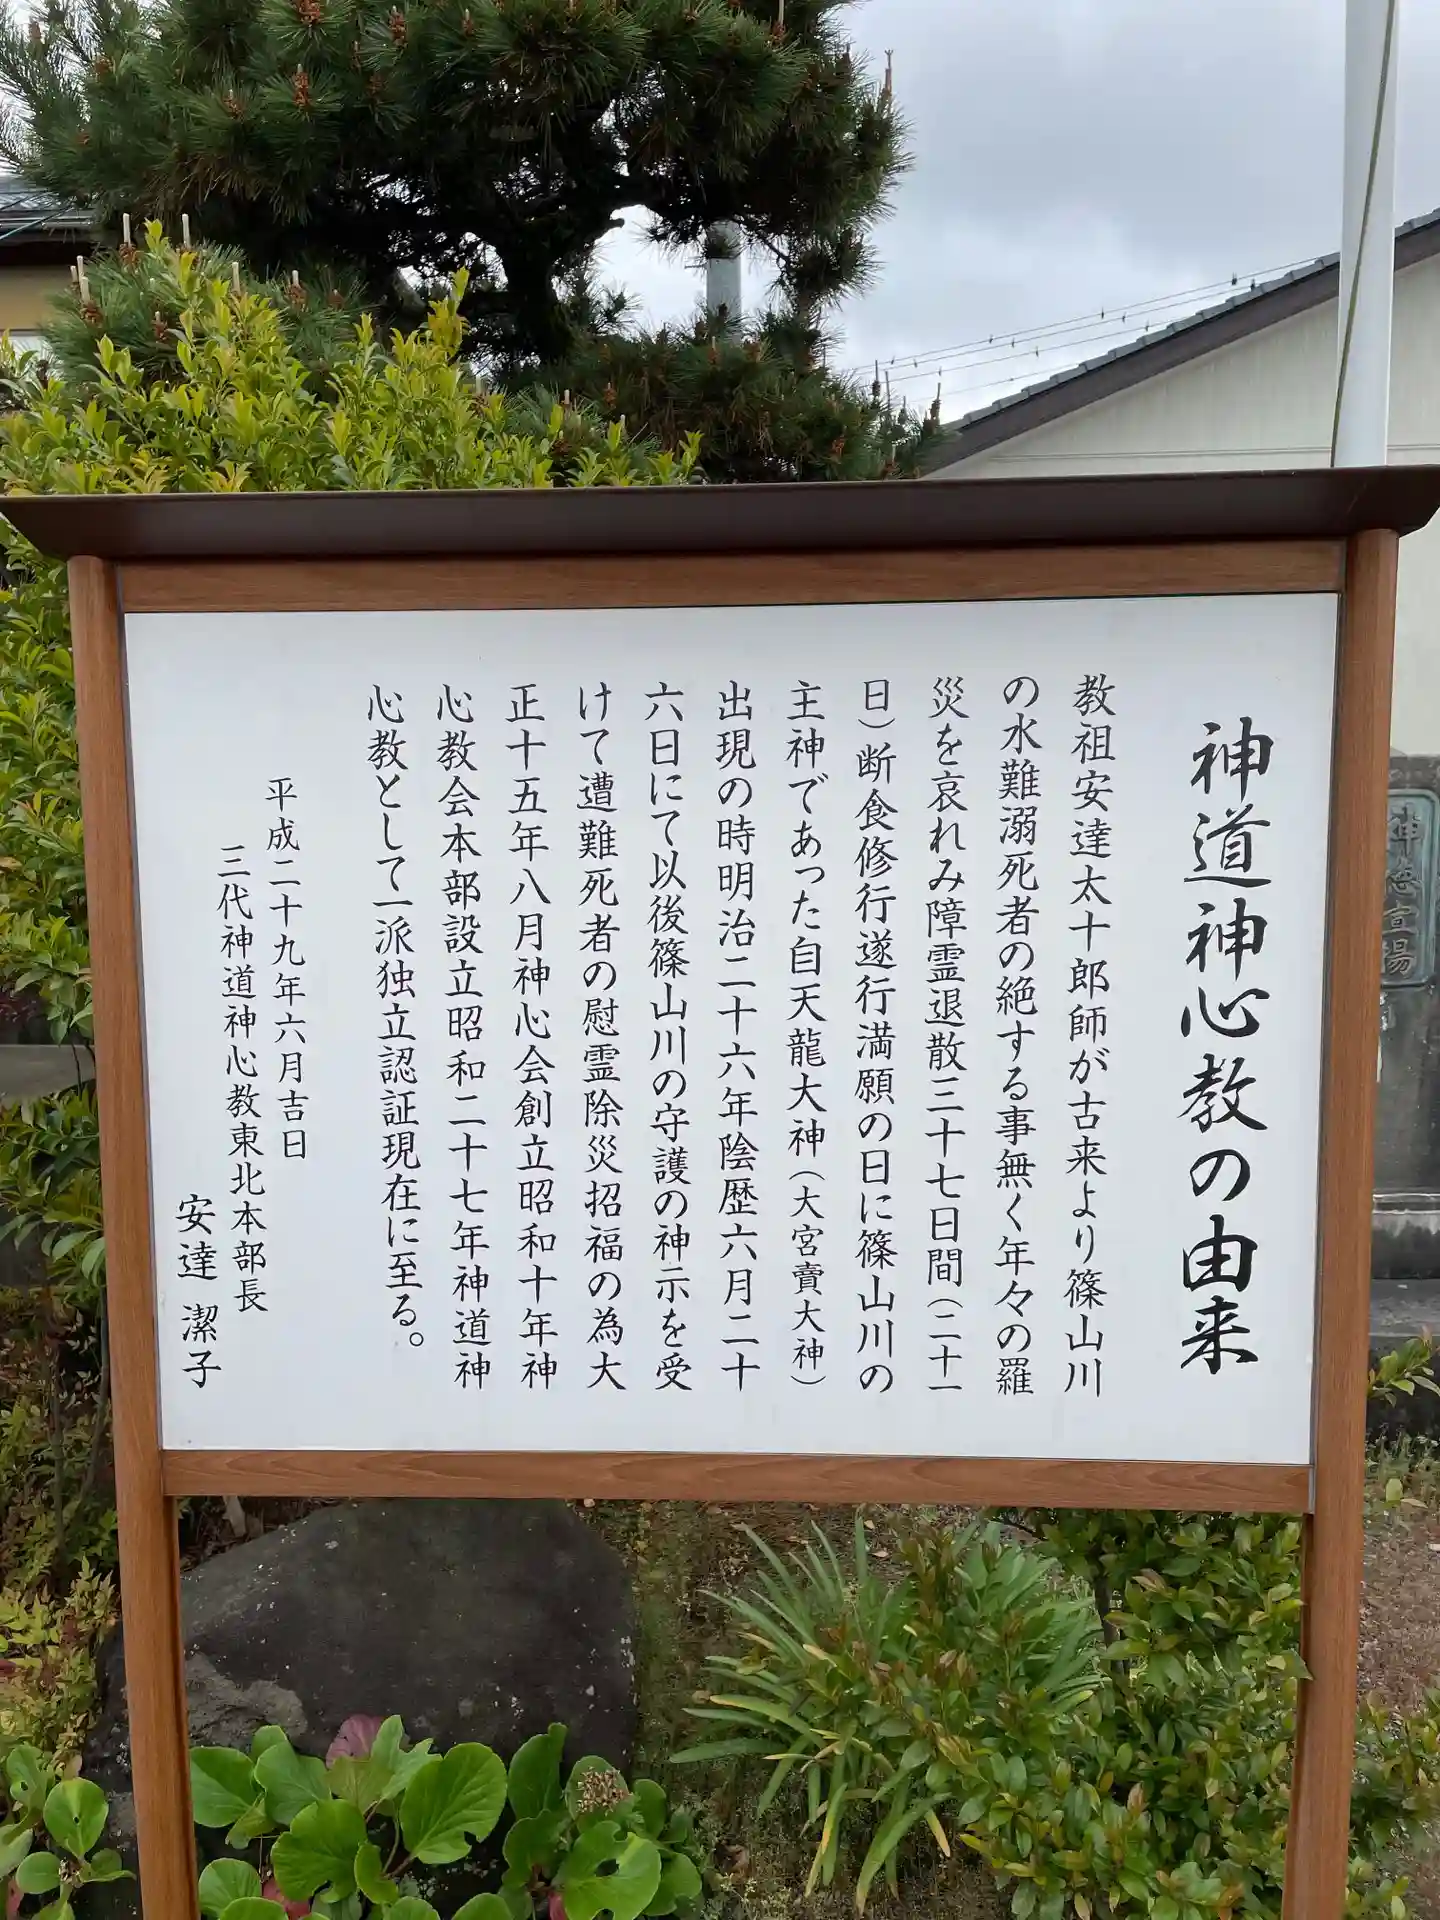 神道神心教の由来
教祖安達太十郎師が古来より篠山川
の水難溺死者の絶する事無く年々の羅
災を哀れみ障霊退散三十七日間（二十一
日）断食修行遂行満願の日に篠山川の
主神であった自天龍大神（大宮賣大神）
出現の時明治二十六年陰歴六月二十
六日にて以後篠山川の守護の神示を受
けて遭難死者の慰霊除災招福の為大
正十五年八月神心会創立昭和十年神
心教会本部設立昭和二十七年神道神
心教として一派独立認証現在に至る。
平成二十九年六月吉日
三代神道神心教東北本部長
安達 潔子